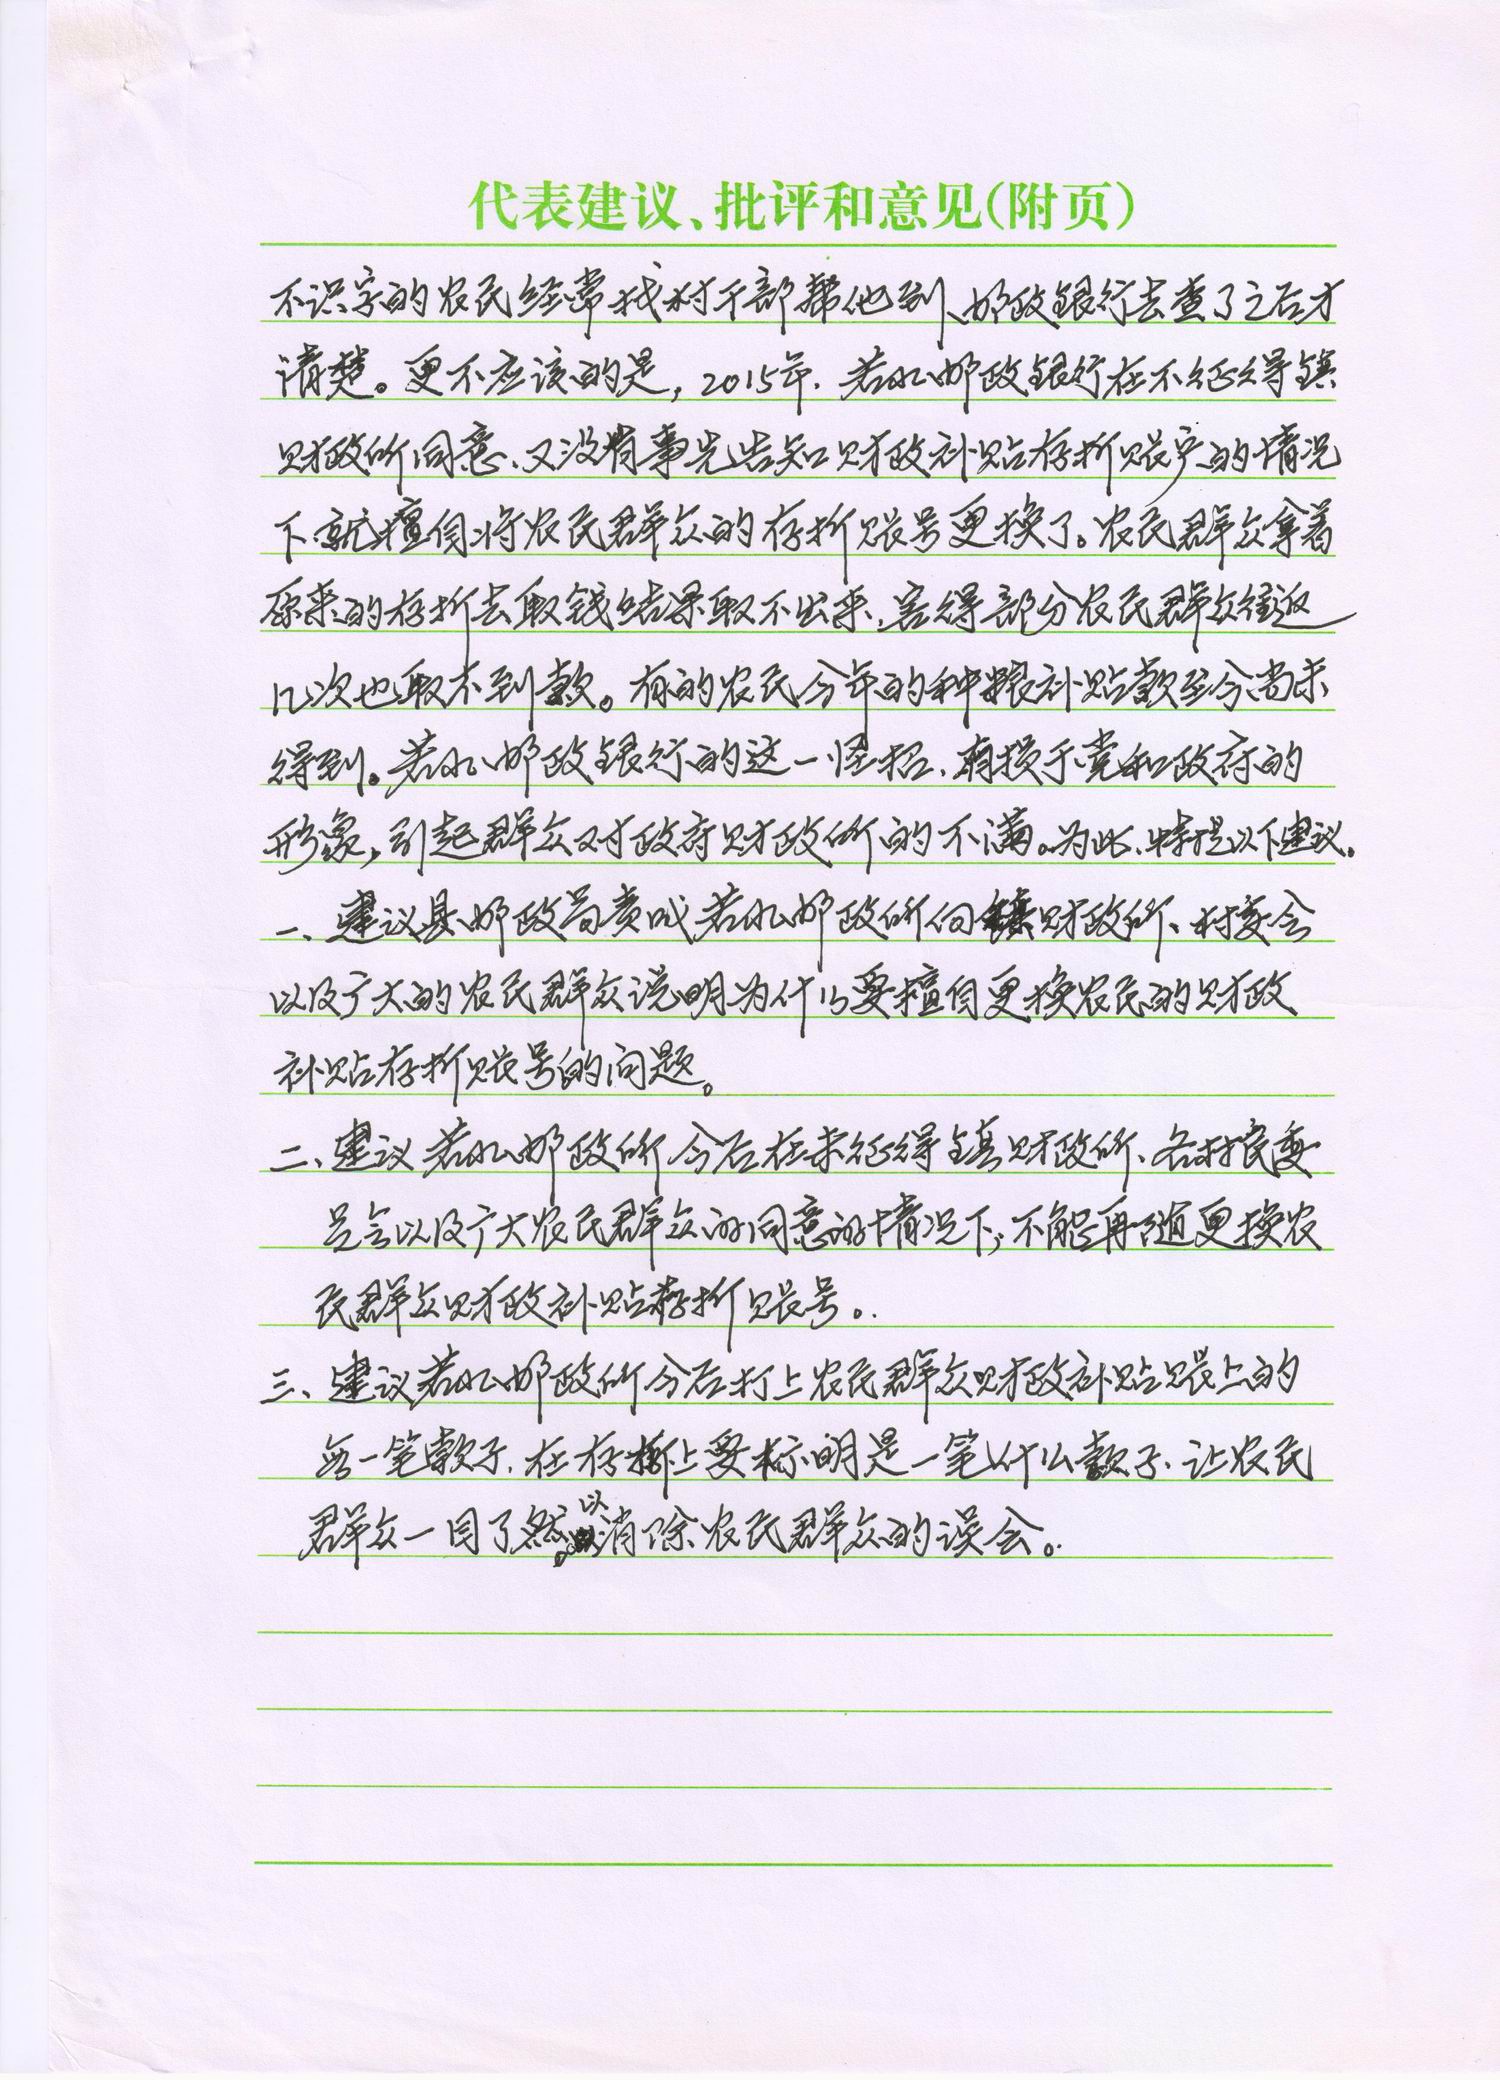 代表建议、批评和意见(附页)
不识字的农民经常找村干部帮他到邮政银行去查了之后才
清楚。更不应该的是，2015年，若水邮政银行在不征得镇
财政所同意、又没有事先告知财政补贴存折账户的情况
下就擅自将农民群众的存折账号更换了。农民群众拿着
原来的存折去取钱结果取不出来，害得部分农民群众往返
几次也取不到款。有的农民今年的种粮补贴款至今尚未
得到。若水邮政银行的这一怪招，有损于党和政府的
形象，引起群众对政府财政所的不满。为此，特提以下建议。
一、建议县邮政局责成若水邮政所向镇财政所、村委会
以及广大的农民群众说明为什么要擅自更换农民的财政
补贴存折账号的问题。
二、建议若水邮政所今后在未征得镇财政所、各村民委
员会以及广大农民群众的同意的情况下，不能再随更换农
民群众财政补贴存折账号。
三、建议若水邮政所今后打上农民群众财政补贴账上的
每一笔款子，在存折上要标明是一笔什么款子，让农民
群众一目了然。以消除农民群众的误会。